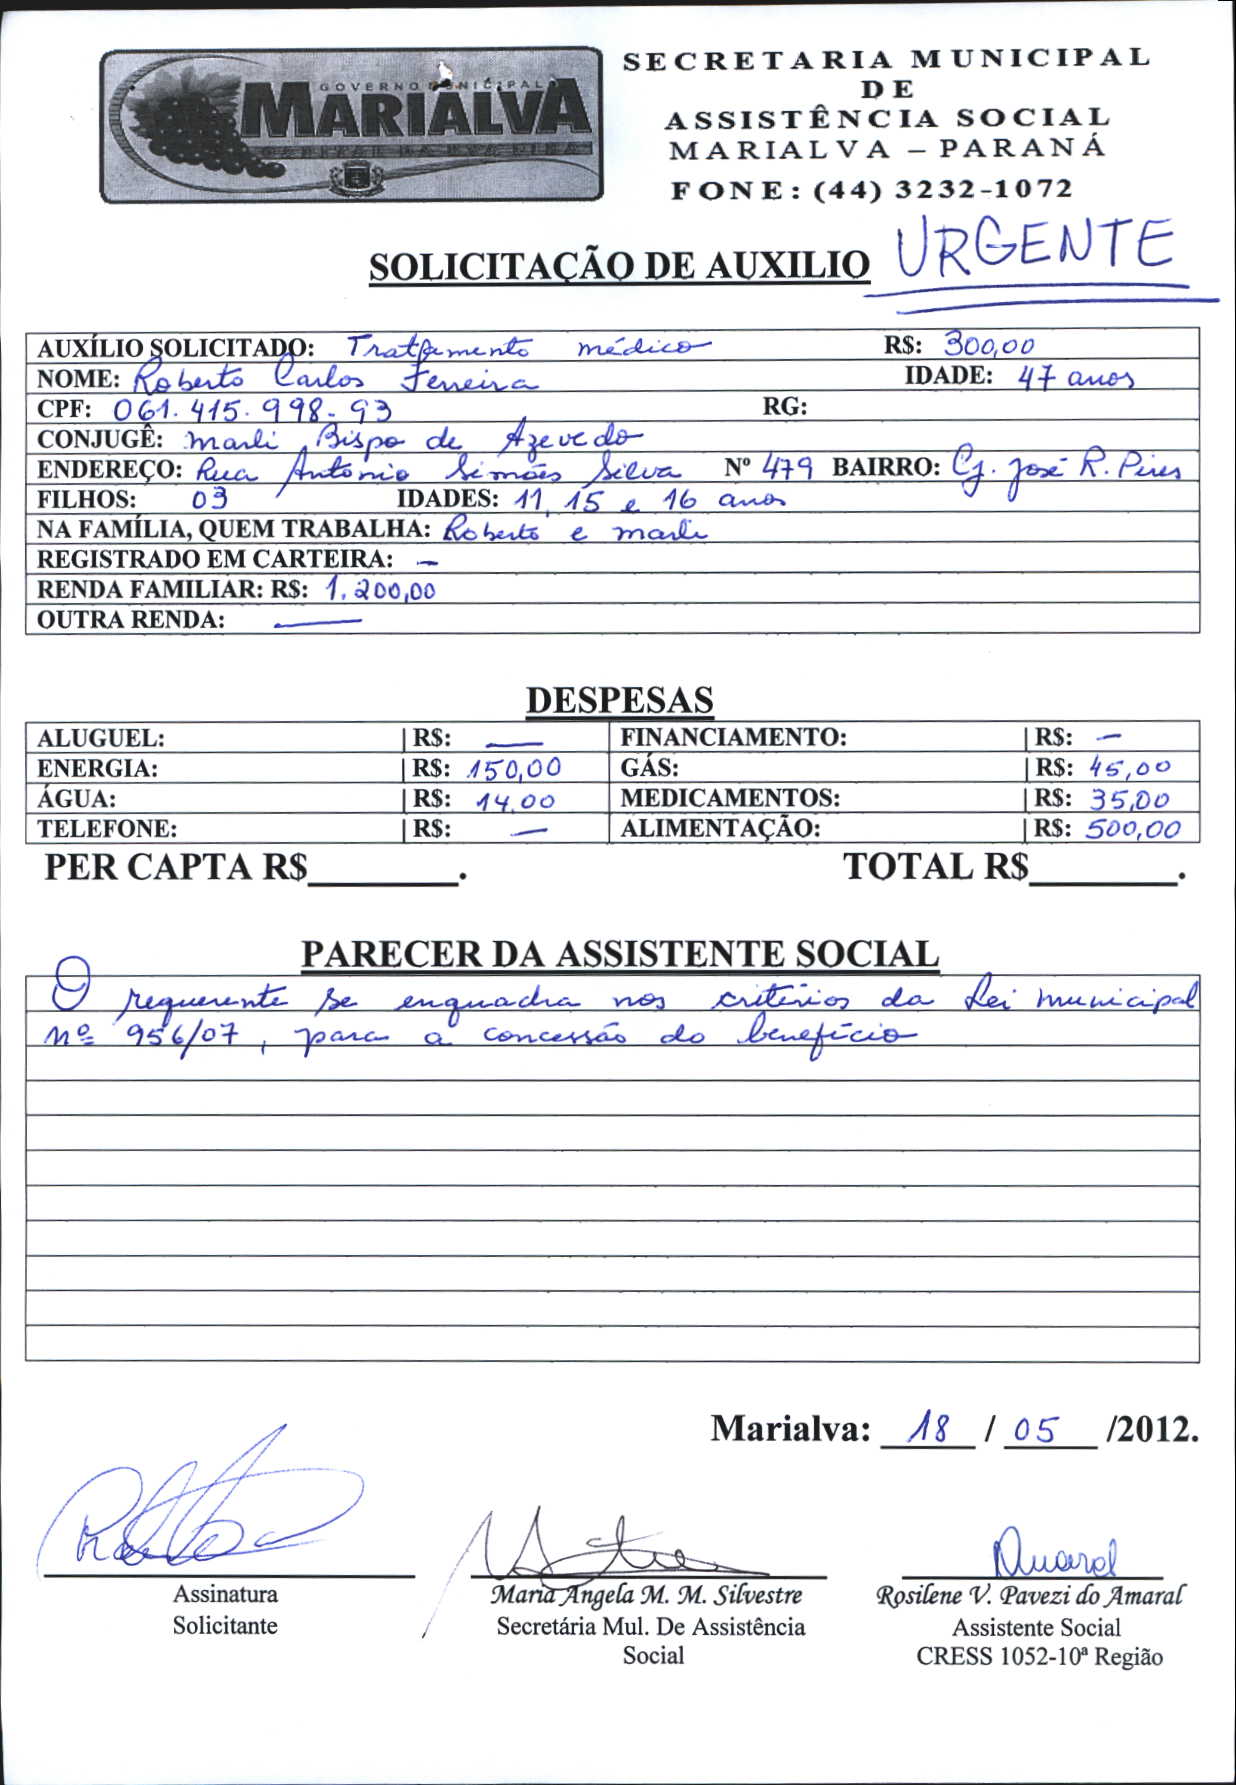 GOVERNO MUNICIPAL
MARIALVA
SECRETARIA MUNICIPAL
DE
ASSISTÊNCIA SOCIAL
MARIALVA – PARANÁ
FONE: (44) 3232-1072
SOLICITAÇÃO DE AUXILIO URGENTE
AUXÍLIO SOLICITADO: Tratamento médico R$: 300,00
NOME: Roberto Carlos Ferreira IDADE: 47 anos
CPF: 061.415.998-93 RG:
CONJUGÊ: Marli Bispo de Azevedo
ENDEREÇO: Rua Antonio Simões Silva Nº 479 BAIRRO: Cj. José R. Pires
FILHOS: 03 IDADES: 11, 15 e 16 anos
NA FAMÍLIA, QUEM TRABALHA: Roberto e Marli
REGISTRADO EM CARTEIRA: –
RENDA FAMILIAR: R$: 1.200,00
OUTRA RENDA: —
DESPESAS
ALUGUEL: R$: — FINANCIAMENTO: R$: –
ENERGIA: R$: 150,00 GÁS: R$: 45,00
ÁGUA: R$: 14,00 MEDICAMENTOS: R$: 35,00
TELEFONE: R$: – ALIMENTAÇÃO: R$: 500,00
PER CAPTA R$________. TOTAL R$________.
PARECER DA ASSISTENTE SOCIAL
O requerente se enquadra nos critérios da Lei Municipal
nº 956/07, para a concessão do benefício
Marialva: 18 / 05 /2012.
Amaral
Assinatura Maria Angela M. M. Silvestre Rosilene V. Pavezi do Amaral
Solicitante Secretária Mul. De Assistência Assistente Social
Social CRESS 1052-10ª Região